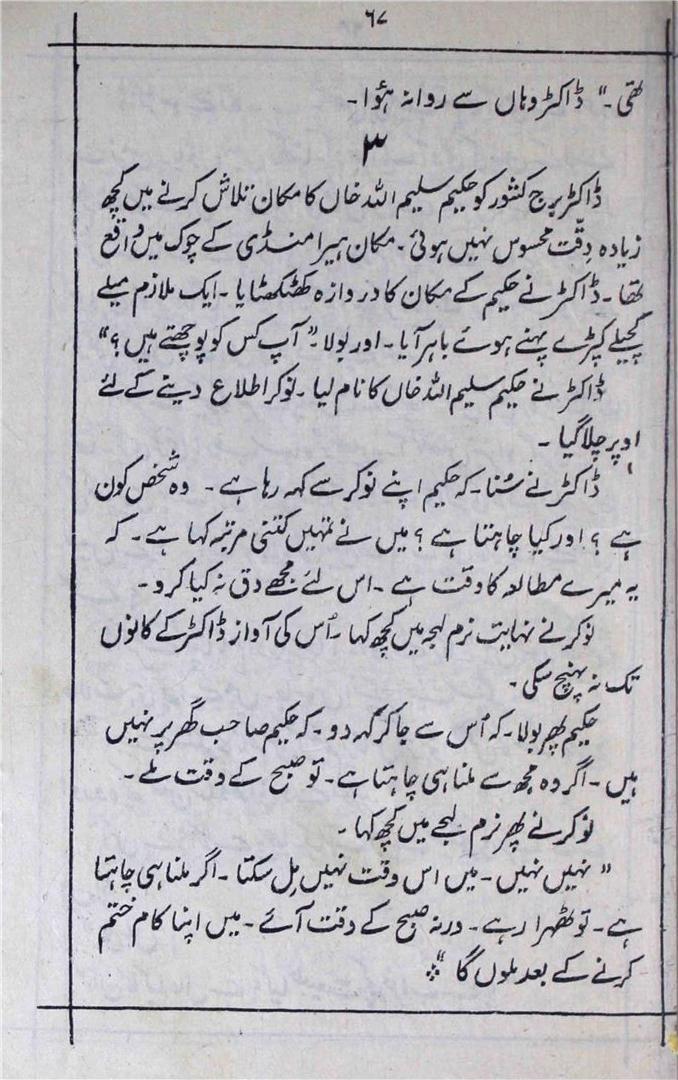 ۶۷
تھی۔" ڈاکٹر وہاں سے روانہ ہؤا۔
۳
ڈاکٹر برج کشور کو حکیم سلیم اللہ خاں کا مکان تلاش کرنے میں کچھ
زیادہ دِقّت محسوس نہیں ہوئی۔ مکان ہیرا منڈی کے چوک میں واقع
تھا۔ ڈاکٹر نے حکیم کے مکان کا دروازہ کھٹکھٹایا۔ ایک ملازم میلے
کچیلے کپڑے پہنے ہوئے باہر آیا۔ اور بولا۔" آپ کس کو پوچھتے ہیں؟"
ڈاکٹر نے حکیم سلیم اللہ خاں کا نام لیا۔ نوکر اطلاع دینے کے لئے
اوپر چلا گیا۔
ڈاکٹر نے سُنا۔ کہ حکیم اپنے نوکر سے کہہ رہا ہے۔ وہ شخص کون
ہے؟ اور کیا چاہتا ہے؟ میں نے تمہیں کتنی مرتبہ کہا ہے۔ کہ
یہ میرے مطالعہ کا وقت ہے۔ اس لئے مجھے دق نہ کیا کرو۔
نوکر نے نہایت نرم لہجہ میں کچھ کہا۔ اُس کی آواز ڈاکٹر کے کانوں
تک نہ پہنچ سکی۔
حکیم پھر بولا۔ کہ اُس سے جا کر کہہ دو۔ کہ حکیم صاحب گھر پر نہیں
ہیں۔ اگر وہ مجھ سے ملنا ہی چاہتا ہے۔ تو صبح کے وقت ملے۔
نوکر نے پھر نرم لہجے میں کچھ کہا۔
" نہیں نہیں۔ میں اس وقت نہیں مِل سکتا۔ اگر ملنا ہی چاہتا
ہے۔ تو ٹھہرا رہے۔ ورنہ صبح کے وقت آئے۔ میں اپنا کام ختم
کرنے کے بعد ملوں گا"